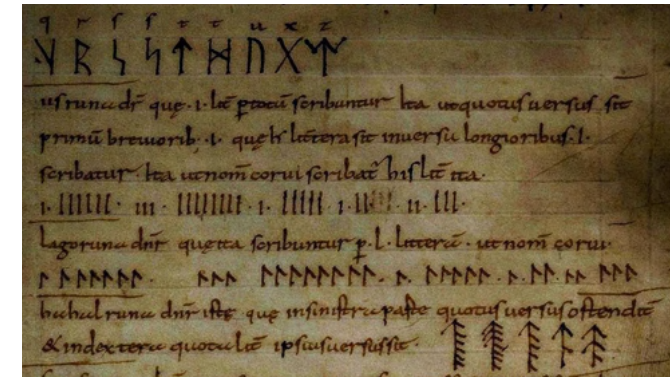 q r s s t t u x z
ᚱ ᛋ ᛋ ᛏ ᛞ ᚢ ᚷ
us runa dr̄ quę · ı · lit̄ ꝑtotū scribuntur Ita utquotus uersus sit
primū breuiorib; · ı · quę h littera sit inuersu longioribus · ı ·
scribatur · Ita ut nom̄ corui scribat̄ his lit̄ ita ·
ı · ıııııı · ııı · ıııııııı · ı · ııııı · ı · ıı · ıı · ııı ·
lagoruna dn̄r quęita scribuntur ꝑ · l · litterā · ut nom̄ corui ·
ᛚ ᛚᛚᛚᛚᛚᛚ · ᛚᛚᛚ ᛚᛚᛚᛚᛚᛚᛚᛚ · ᛚ · ᛚᛚᛚᛚᛚ · ᛚ · ᛚᛚ · ᛚᛚ ᛚᛚᛚ
hahalruna dn̄r istę quę insinistra parte quotus uersus ostendit̄
& indextera quota lit̄ ipsius uersus sit ·